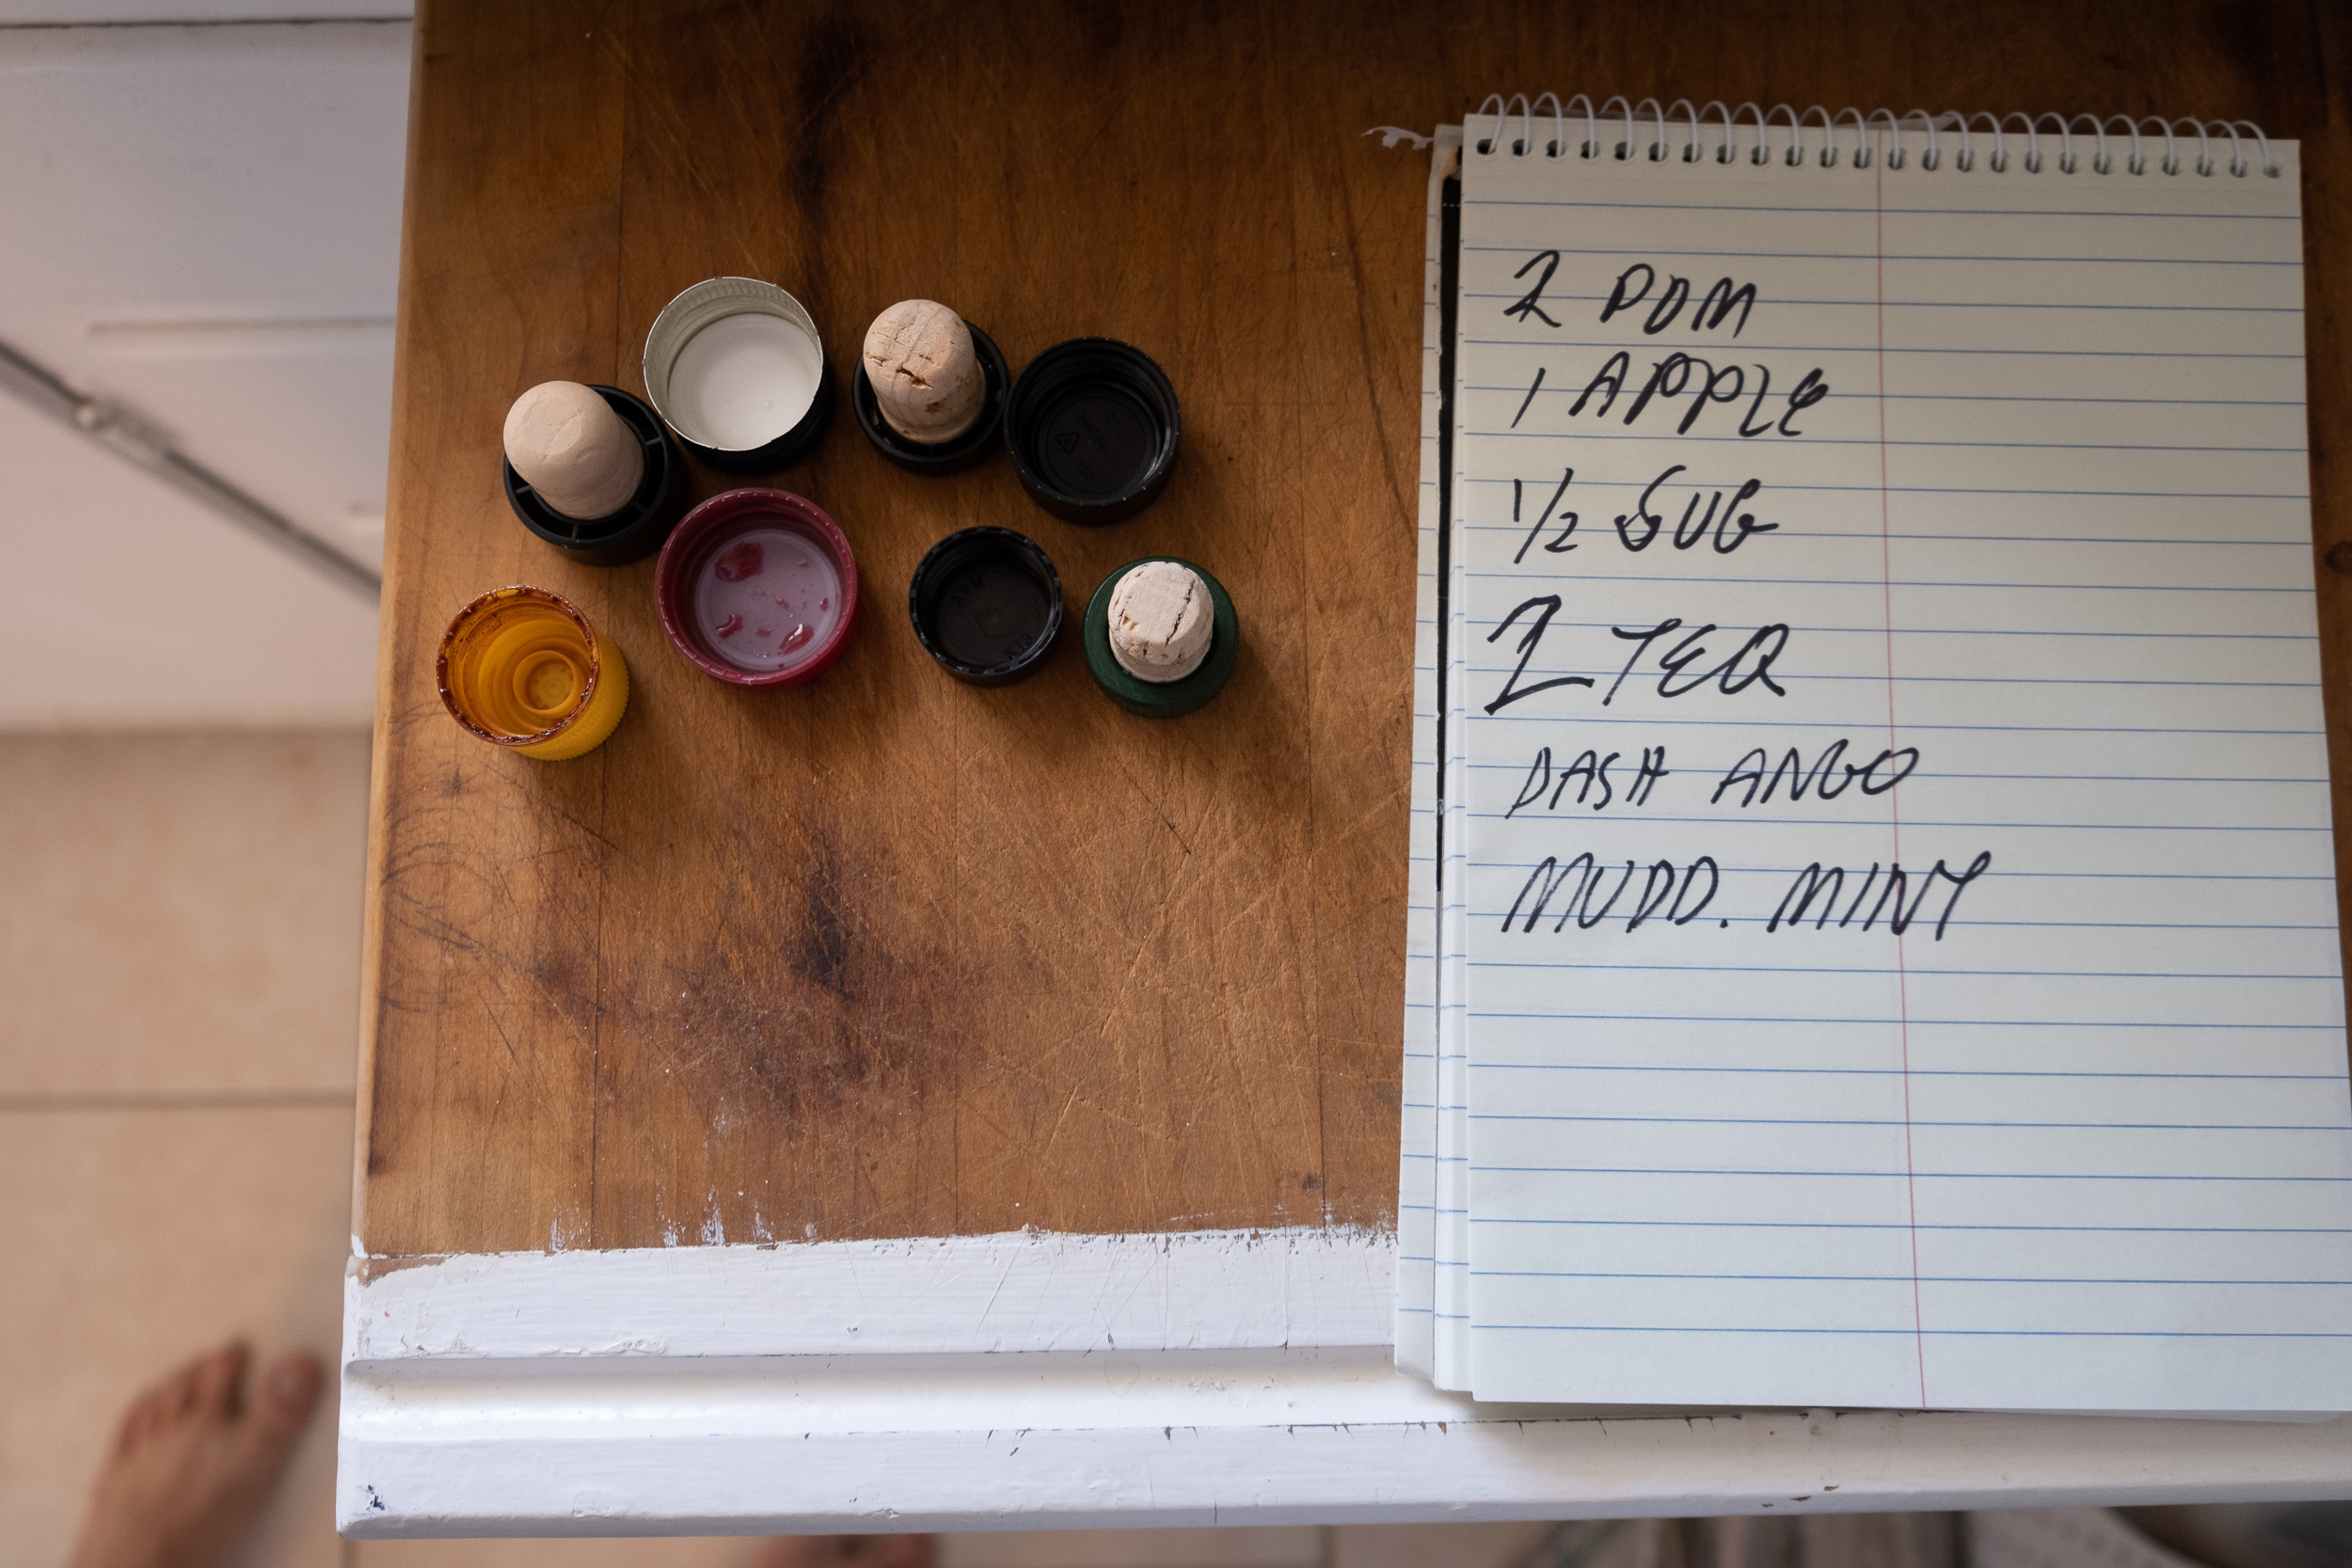 2 POM
1 APPLE
1/2 SUG
2 TEQ
DASH ANGO
MUDD. MINT